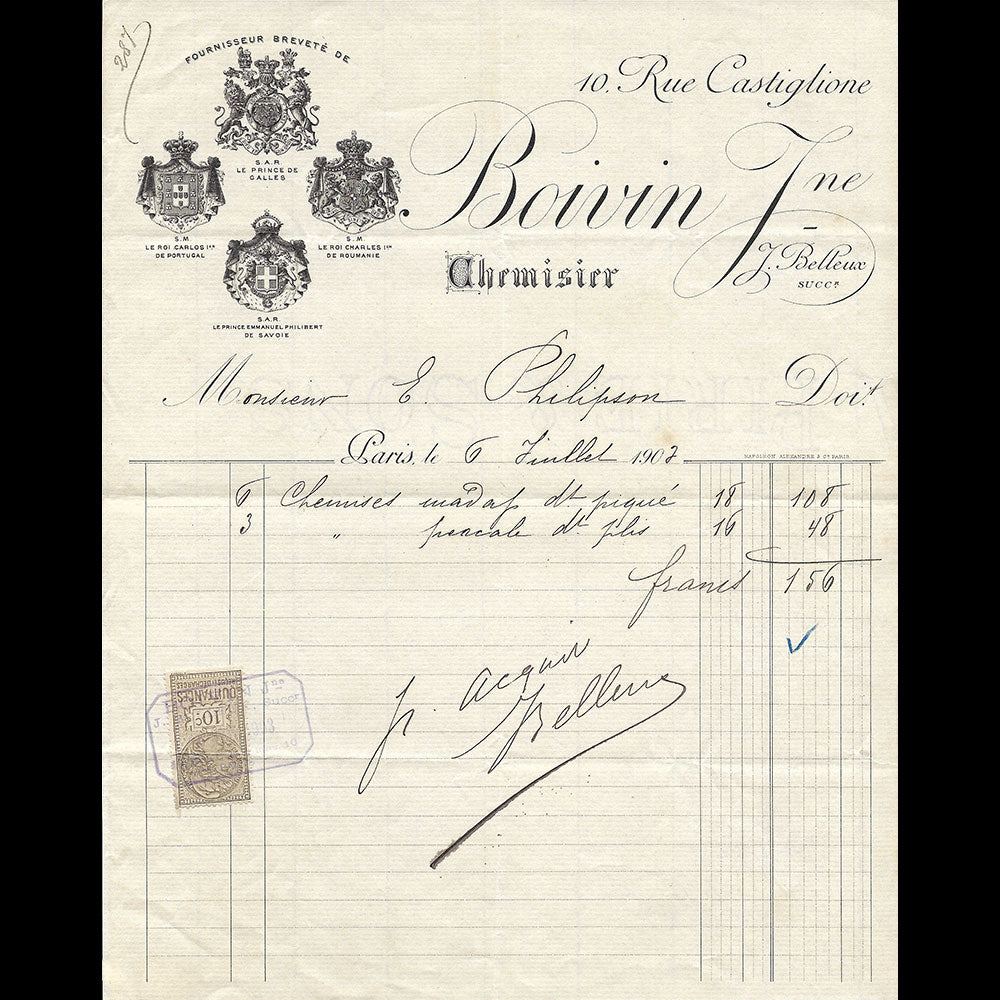 287
FOURNISSEUR BREVETÉ DE
S.A.R.
LE PRINCE DE
GALLES
S.M.
LE ROI CARLOS Ier
DE PORTUGAL
S.M.
LE ROI CHARLES Ier
DE ROUMANIE
S.A.R.
LE PRINCE EMMANUEL PHILIBERT
DE SAVOIE
10, Rue Castiglione
Boivin Jne
J. Belleux
SUCCr.
Chemisier
Monsieur E. Philipson Doit
Paris, le 6 Juillet 1903
NAPOLEON ALEXANDRE & Cie PARIS.
6 Chemises madap dt piqué 18 108
3 " percale dt plis 16 48
francs 156
p. Acquit
JBelleux
QUITTANCES
10c